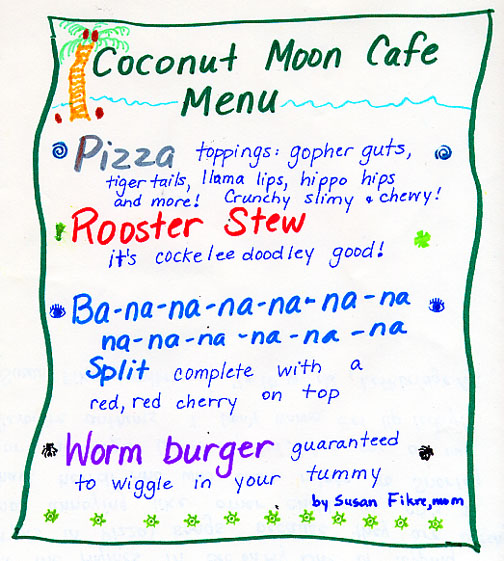 Coconut Moon Cafe
Menu
Pizza toppings: gopher guts,
tiger tails, llama lips, hippo hips
and more! Crunchy slimy & chewy!
Rooster Stew
it's cockeleedoodley good!
Ba-na-na-na-na-na-na
na-na-na-na-na-na
Split complete with a
red, red cherry on top
Worm burger guaranteed
to wiggle in your tummy
by Susan Fikre, mom